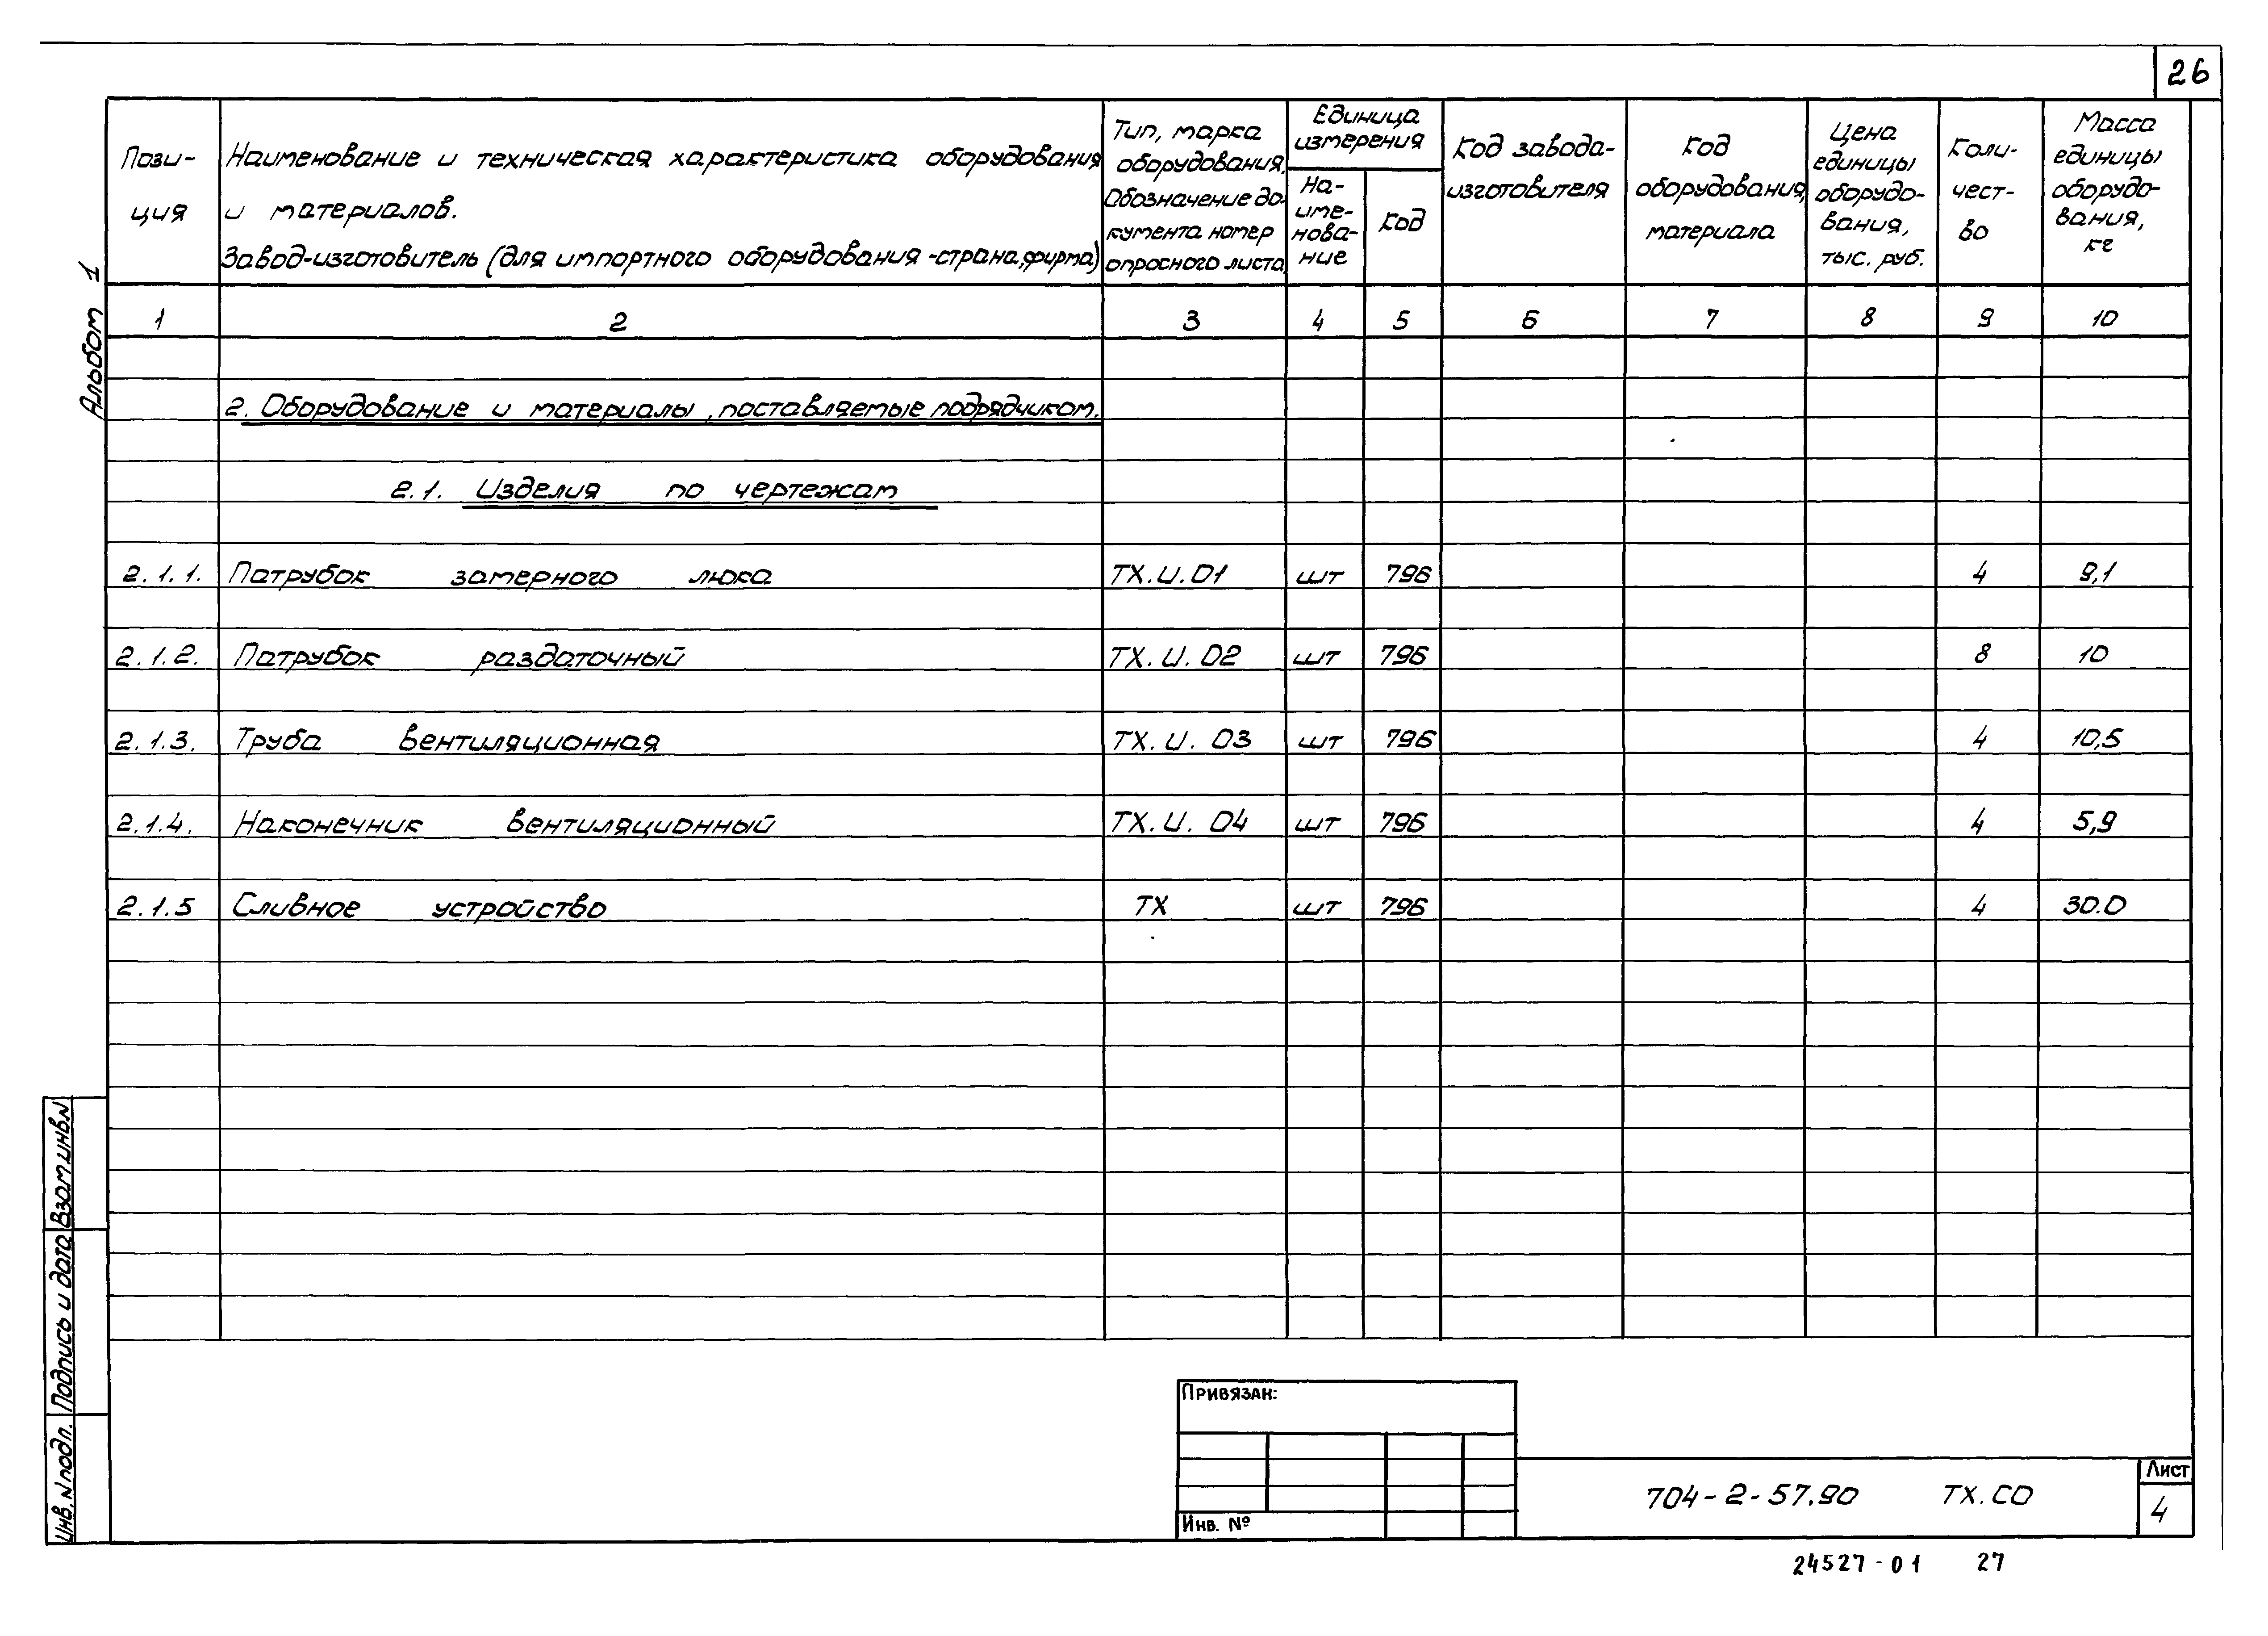 26
Альбом 1
Пози-
ция
Наименование и техническая характеристика оборудования
и материалов.
Завод-изготовитель (для импортного оборудования -страна,фирма)
Тип, марка
оборудования,
Обозначение до-
кумента номер
опросного листа
Единица
измерения
На-
име-
нова-
ние
Код
Код завода-
изготовителя
Код
оборудования,
материала
Цена
единицы
оборудо-
вания,
тыс. руб.
Коли-
чест-
во
Масса
единицы
оборудо-
вания,
кг
1 2 3 4 5 6 7 8 9 10
2. Оборудование и материалы, поставляемые подрядчиком.
2.1. Изделия по чертежам
2.1.1. Патрубок замерного люка ТХ.И.01 шт 796 4 9,1
2.1.2. Патрубок раздаточный ТХ.И.02 шт 796 8 10
2.1.3. Труба вентиляционная ТХ.И.03 шт 796 4 10,5
2.1.4. Наконечник вентиляционный ТХ.И.04 шт 796 4 5,9
2.1.5 Сливное устройство ТХ шт 796 4 30.0
Взам инв.N
Подпись и дата
Инв. N подл.
Привязан:
Инв. №
704-2-57.90 ТХ.СО
Лист
4
24527-01 27